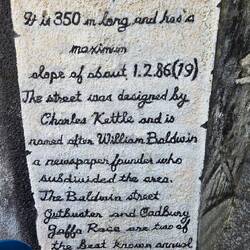 It is 350 m long and has a
maximum
slope of about 1.2.86(19)
The street was designed by
Charles Kettle and is
named after William Baldwin
a newspaper founder who
subdivided the area.
The Baldwin street
Gutbuster and Cadbury
Jaffa Race are two of
the best known annual